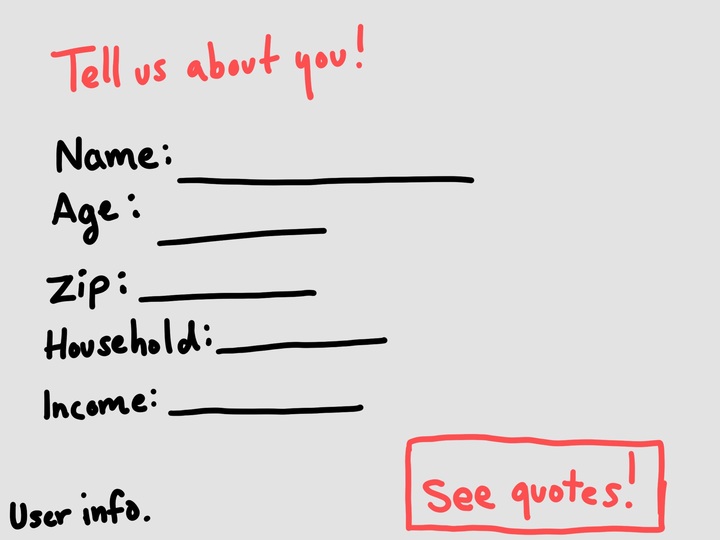 Tell us about you!
Name:
Age:
Zip:
Household:
Income:
See quotes!
User info.